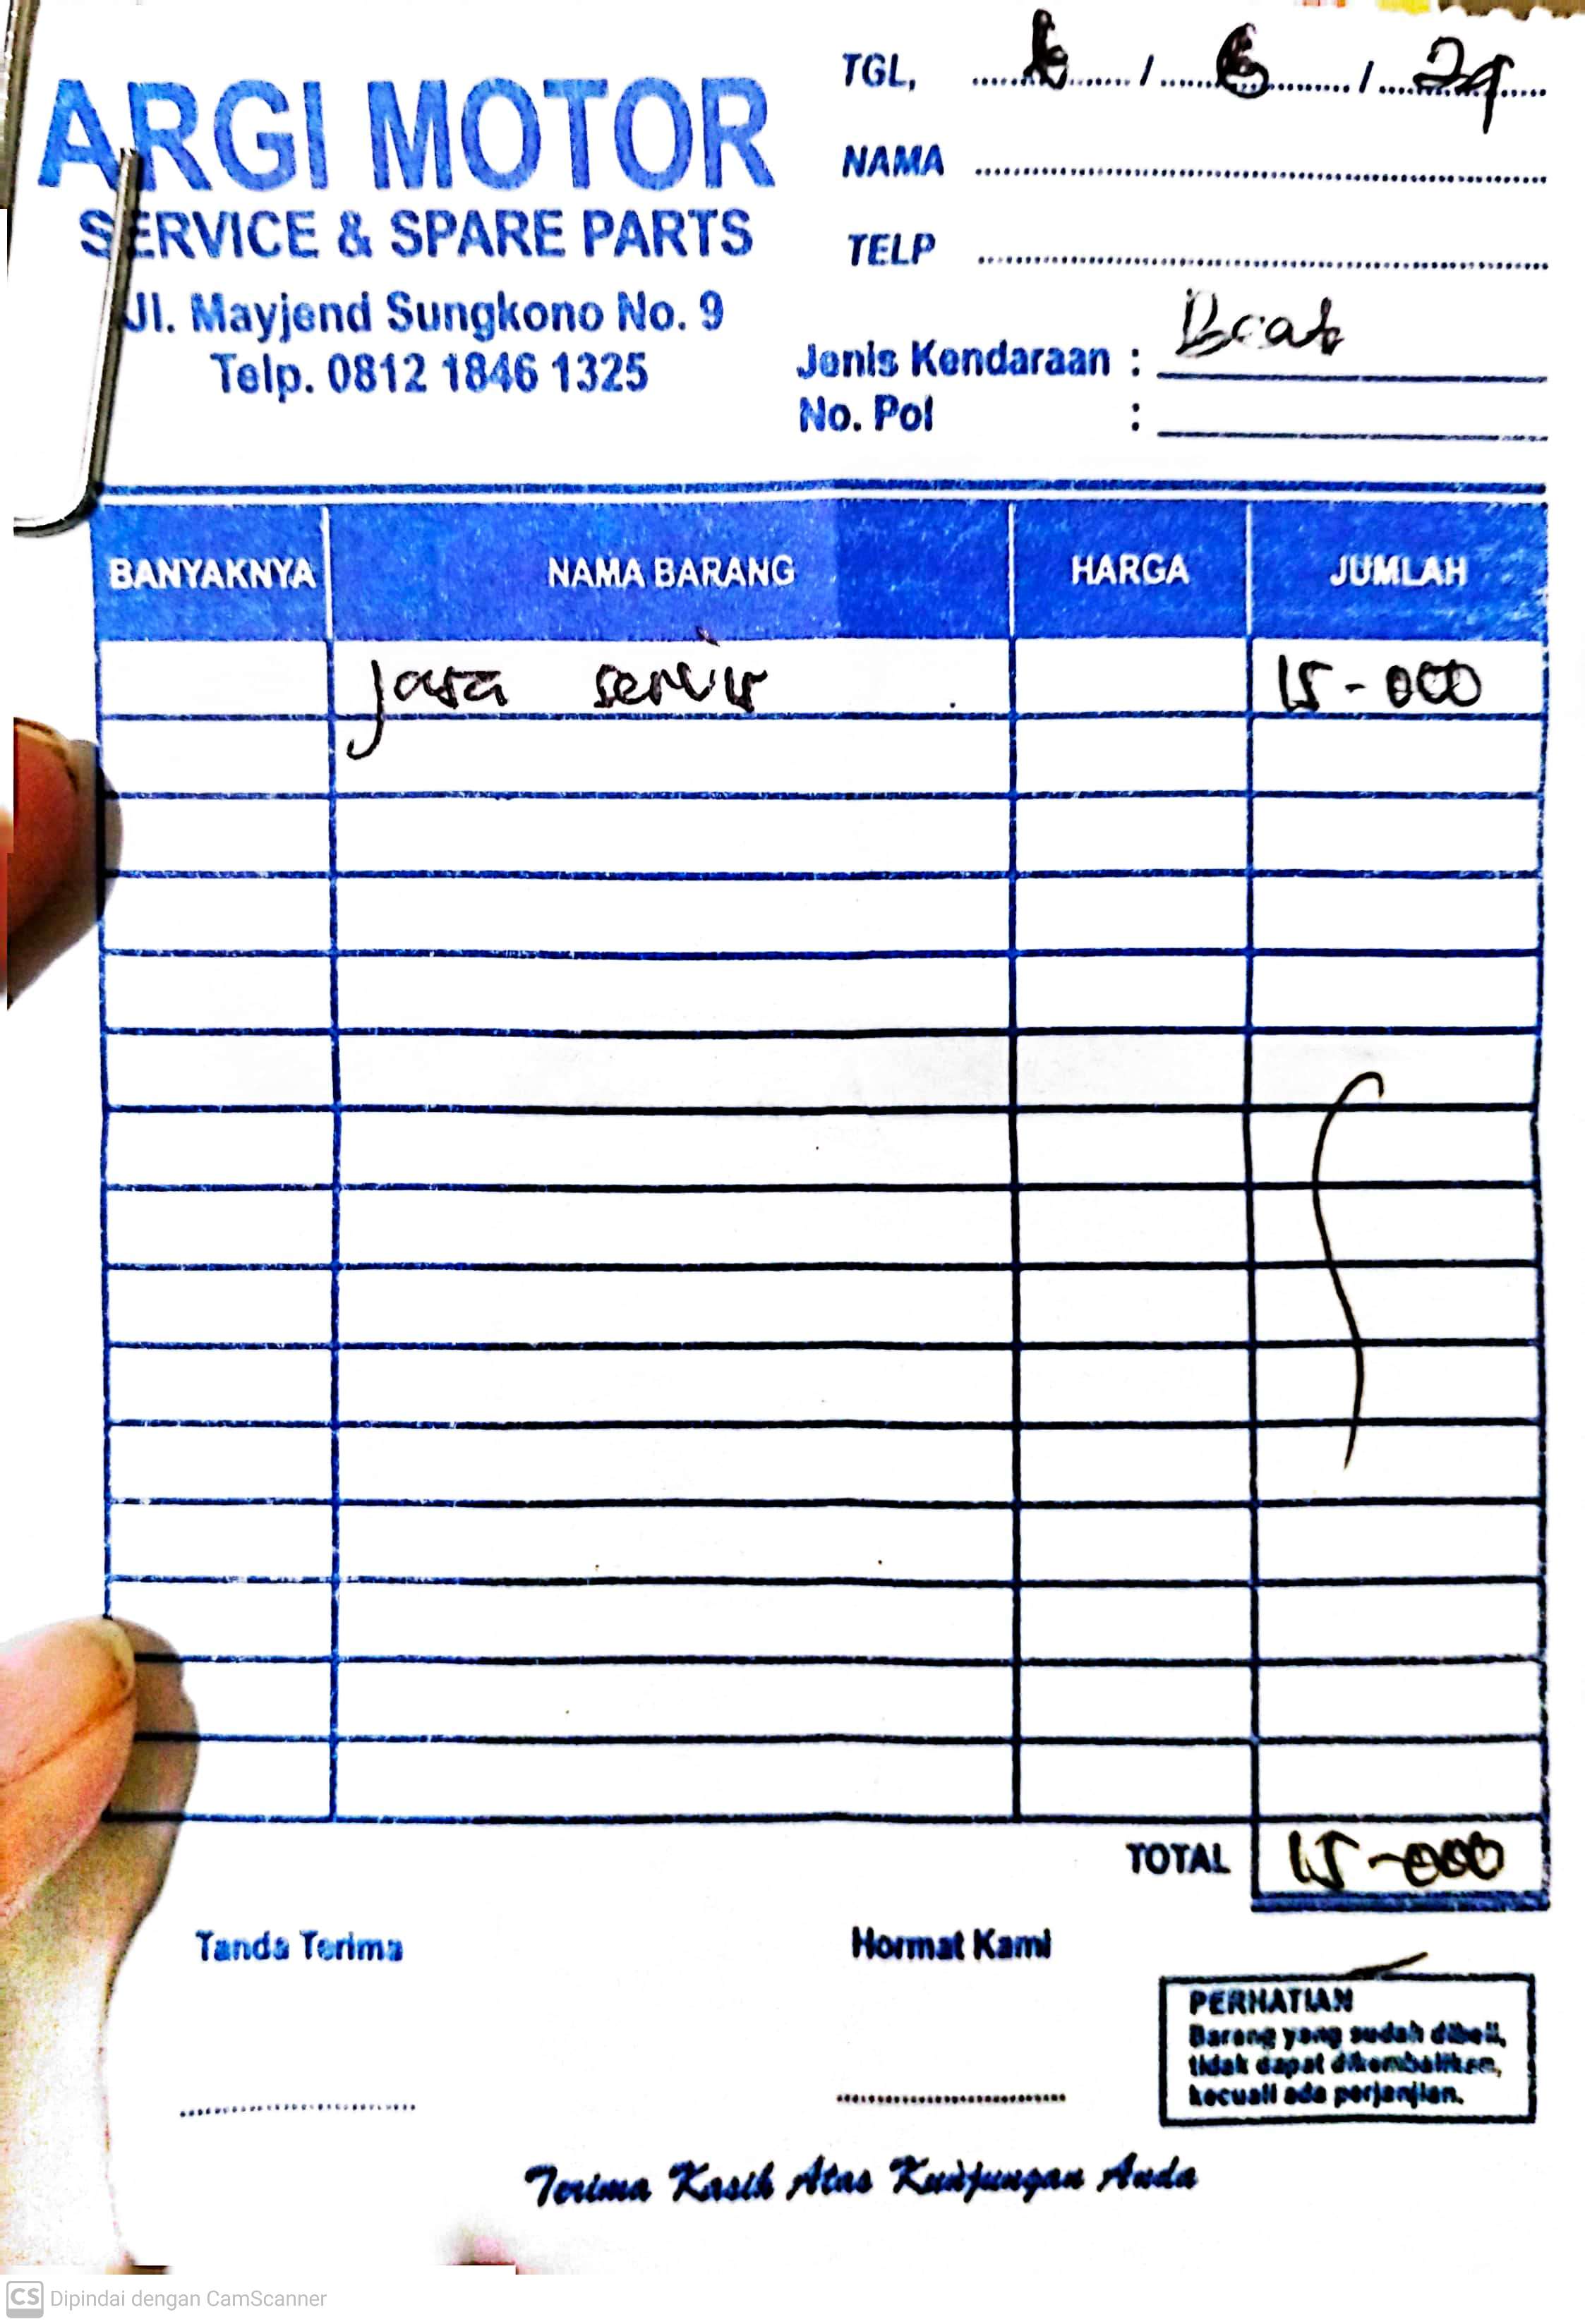 ARGI MOTOR
SERVICE & SPARE PARTS
Jl. Mayjend Sungkono No. 9
Telp. 0812 1846 1325
TGL, / 6 / 24
NAMA
TELP
Jenis Kendaraan : Beat
No. Pol :
BANYAKNYA NAMA BARANG HARGA JUMLAH
Jasa servis 15-000
TOTAL 15-000
Tanda Terima Hormat Kami
PERHATIAN
Barang yang sudah dibeli,
tidak dapat dikembalikan,
kecuali ada perjanjian.
Terima Kasih Atas Kunjungan Anda
CS Dipindai dengan CamScanner